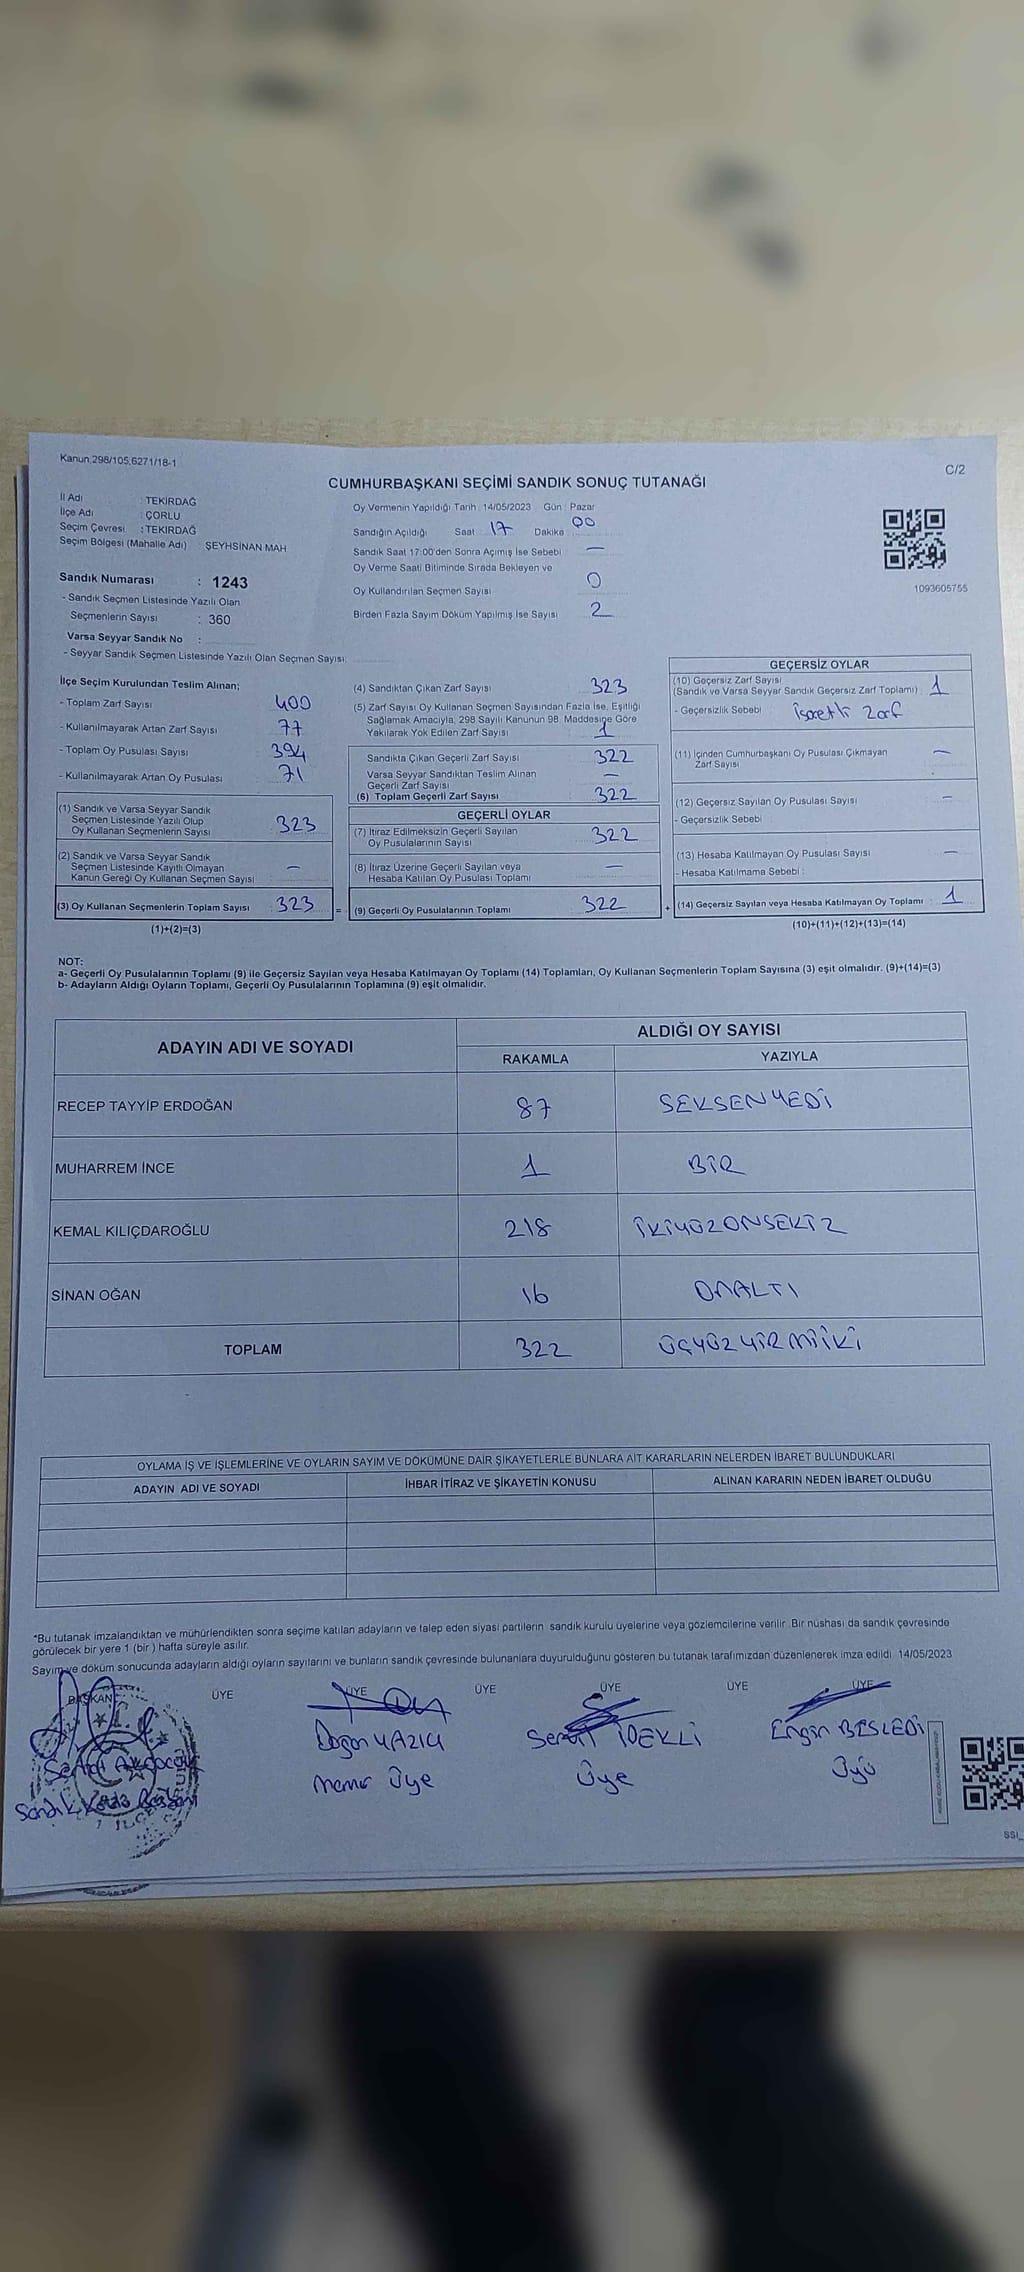 Kanun,298/105,6271/18-1
C/2
CUMHURBAŞKANI SEÇİMİ SANDIK SONUÇ TUTANAĞI
İl Adı : TEKİRDAĞ
İlçe Adı : ÇORLU
Seçim Çevresi : TEKİRDAĞ
Seçim Bölgesi (Mahalle Adı) ŞEYHSİNAN MAH
Sandık Numarası : 1243
- Sandık Seçmen Listesinde Yazılı Olan
Seçmenlerin Sayısı : 360
Varsa Seyyar Sandık No :
- Seyyar Sandık Seçmen Listesinde Yazılı Olan Seçmen Sayısı:
Oy Vermenin Yapıldığı Tarih : 14/05/2023 Gün : Pazar
Sandığın Açıldığı Saat 17 Dakika 00
Sandık Saat 17:00'den Sonra Açımış İse Sebebi —
Oy Verme Saati Bitiminde Sırada Bekleyen ve
Oy Kullandırılan Seçmen Sayısı 0
Birden Fazla Sayım Döküm Yapılmış İse Sayısı 2
1093605755
İlçe Seçim Kurulundan Teslim Alınan;
- Toplam Zarf Sayısı 400
- Kullanılmayarak Artan Zarf Sayısı 77
- Toplam Oy Pusulası Sayısı 394
- Kullanılmayarak Artan Oy Pusulası 71
(1) Sandık ve Varsa Seyyar Sandık
Seçmen Listesinde Yazılı Olup
Oy Kullanan Seçmenlerin Sayısı 323
(2) Sandık ve Varsa Seyyar Sandık
Seçmen Listesinde Kayıtlı Olmayan
Kanun Gereği Oy Kullanan Seçmen Sayısı —
(3) Oy Kullanan Seçmenlerin Toplam Sayısı 323 =
(1)+(2)=(3)
(4) Sandıktan Çıkan Zarf Sayısı 323
(5) Zarf Sayısı Oy Kullanan Seçmen Sayısından Fazla İse, Eşitliği
Sağlamak Amacıyla, 298 Sayılı Kanunun 98. Maddesine Göre
Yakılarak Yok Edilen Zarf Sayısı 1
Sandıkta Çıkan Geçerli Zarf Sayısı 322
Varsa Seyyar Sandıktan Teslim Alınan
Geçerli Zarf Sayısı —
(6) Toplam Geçerli Zarf Sayısı 322
GEÇERLİ OYLAR
(7) İtiraz Edilmeksizin Geçerli Sayılan
Oy Pusulalarının Sayısı 322
(8) İtiraz Üzerine Geçerli Sayılan veya
Hesaba Katılan Oy Pusulası Toplamı —
(9) Geçerli Oy Pusulalarının Toplamı 322 +
GEÇERSİZ OYLAR
(10) Geçersiz Zarf Sayısı
(Sandık ve Varsa Seyyar Sandık Geçersiz Zarf Toplamı) 1
- Geçersizlik Sebebi : İşaretli zarf
(11) İçinden Cumhurbaşkanı Oy Pusulası Çıkmayan
Zarf Sayısı —
(12) Geçersiz Sayılan Oy Pusulası Sayısı —
- Geçersizlik Sebebi :
(13) Hesaba Katılmayan Oy Pusulası Sayısı —
- Hesaba Katılmama Sebebi :
(14) Geçersiz Sayılan veya Hesaba Katılmayan Oy Toplamı : 1
(10)+(11)+(12)+(13)=(14)
NOT:
a- Geçerli Oy Pusulalarının Toplamı (9) ile Geçersiz Sayılan veya Hesaba Katılmayan Oy Toplamı (14) Toplamları, Oy Kullanan Seçmenlerin Toplam Sayısına (3) eşit olmalıdır. (9)+(14)=(3)
b- Adayların Aldığı Oyların Toplamı, Geçerli Oy Pusulalarının Toplamına (9) eşit olmalıdır.
ADAYIN ADI VE SOYADI
ALDIĞI OY SAYISI
RAKAMLA YAZIYLA
RECEP TAYYİP ERDOĞAN 87 SEKSENYEDİ
MUHARREM İNCE 1 BİR
KEMAL KILIÇDAROĞLU 218 İKİYÜZONSEKİZ
SİNAN OĞAN 16 ONALTI
TOPLAM 322 ÜÇYÜZYİRMİİKİ
OYLAMA İŞ VE İŞLEMLERİNE VE OYLARIN SAYIM VE DÖKÜMÜNE DAİR ŞİKAYETLERLE BUNLARA AİT KARARLARIN NELERDEN İBARET BULUNDUKLARI
ADAYIN ADI VE SOYADI İHBAR İTİRAZ VE ŞİKAYETİN KONUSU ALINAN KARARIN NEDEN İBARET OLDUĞU
*Bu tutanak imzalandıktan ve mühürlendikten sonra seçime katılan adayların ve talep eden siyasi partilerin sandık kurulu üyelerine veya gözlemcilerine verilir. Bir nüshası da sandık çevresinde
görülecek bir yere 1 (bir ) hafta süreyle asılır.
Sayım ve döküm sonucunda adayların aldığı oyların sayılarını ve bunların sandık çevresinde bulunanlara duyurulduğunu gösteren bu tutanak tarafımızdan düzenlenerek imza edildi. 14/05/2023
BAŞKAN ÜYE ÜYE ÜYE ÜYE ÜYE ÜYE
Doğan YAZICI İDEKLİ Engin BESLEDİ
Sandık Başkanı
Memur Üye Üye Üye
SSI_